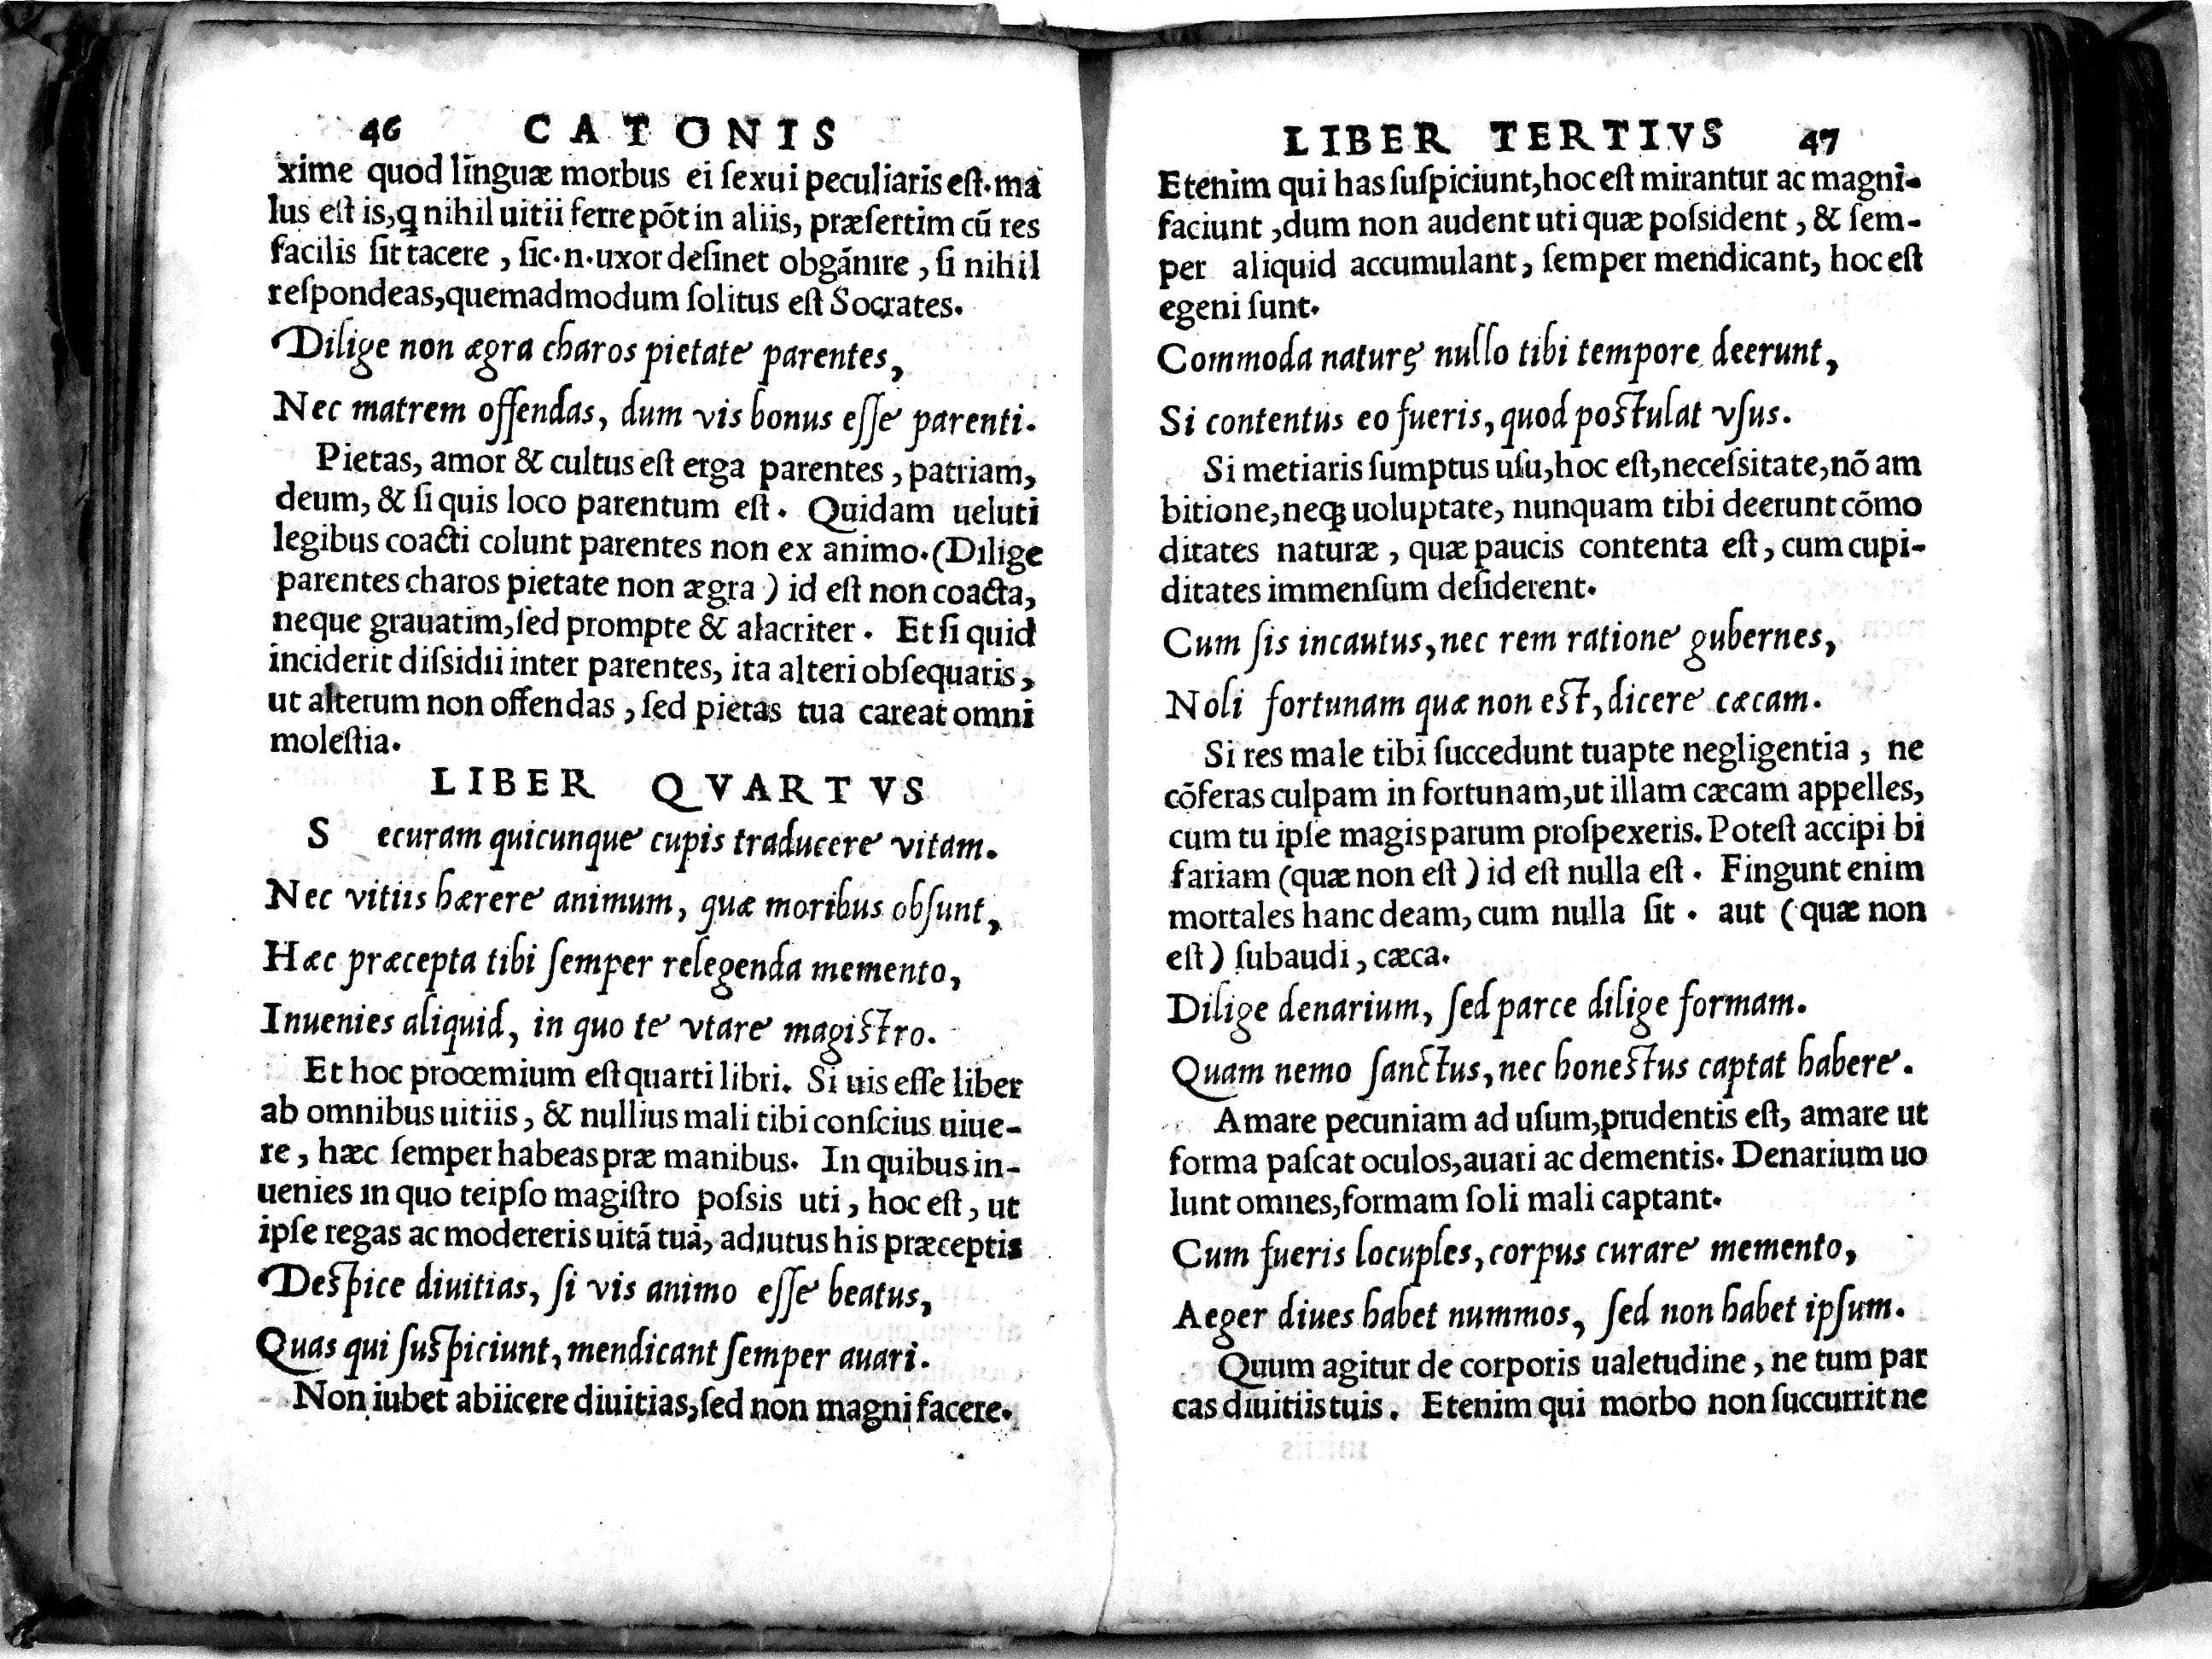 46 CATONIS
xime quod linguæ morbus ei ſexui peculiaris eſt. ma
lus eſt is, ꝗ nihil uitii ferre põt in aliis, præſertim cũ res
facilis ſit tacere, ſic.n.uxor deſinet obgãnire, ſi nihil
reſpondeas, quemadmodum ſolitus eſt Socrates.
Dilige non ægra charos pietate parentes,
Nec matrem offendas, dum vis bonus eſſe parenti.
Pietas, amor & cultus eſt erga parentes, patriam,
deum, & ſi quis loco parentum eſt. Quidam ueluti
legibus coacti colunt parentes non ex animo. (Dilige
parentes charos pietate non ægra) id eſt non coacta,
neque grauatim, ſed prompte & alacriter. Et ſi quid
inciderit diſsidii inter parentes, ita alteri obſequaris,
ut alterum non offendas, ſed pietas tua careat omni
moleſtia.
LIBER QVARTVS
S ecuram quicunque cupis traducere vitam.
Nec vitiis hærere animum, quæ moribus obſunt,
Hæc præcepta tibi ſemper relegenda memento,
Inuenies aliquid, in quo te vtare magiſtro.
Et hoc proœmium eſt quarti libri. Si uis eſſe liber
ab omnibus uitiis, & nullius mali tibi conſcius uiue-
re, hæc ſemper habeas præ manibus. In quibus in-
uenies in quo teipſo magiſtro poſsis uti, hoc eſt, ut
ipſe regas ac modereris uitã tuã, adiutus his præceptis
Deſpice diuitias, ſi vis animo eſſe beatus,
Quas qui ſuſpiciunt, mendicant ſemper auari.
Non iubet abiicere diuitias, ſed non magni facere.
LIBER TERTIVS 47
Etenim qui has ſuſpiciunt, hoc eſt mirantur ac magni-
faciunt, dum non audent uti quæ poſsident, & ſem-
per aliquid accumulant, ſemper mendicant, hoc eſt
egeni ſunt.
Commoda naturę nullo tibi tempore deerunt,
Si contentus eo fueris, quod poſtulat vſus.
Si metiaris ſumptus uſu, hoc eſt, neceſsitate, nõ am
bitione, neqꝫ uoluptate, nunquam tibi deerunt cõmo
ditates naturæ, quæ paucis contenta eſt, cum cupi-
ditates immenſum deſiderent.
Cum ſis incautus, nec rem ratione gubernes,
Noli fortunam quæ non eſt, dicere cæcam.
Si res male tibi ſuccedunt tuapte negligentia, ne
cõferas culpam in fortunam, ut illam cæcam appelles,
cum tu ipſe magis parum proſpexeris. Poteſt accipi bi
fariam (quæ non eſt) id eſt nulla eſt. Fingunt enim
mortales hanc deam, cum nulla ſit. aut (quæ non
eſt) ſubaudi, cæca.
Dilige denarium, ſed parce dilige formam.
Quam nemo ſanctus, nec honeſtus captat habere.
Amare pecuniam ad uſum, prudentis eſt, amare ut
forma paſcat oculos, auari ac dementis. Denarium uo
lunt omnes, formam ſoli mali captant.
Cum fueris locuples, corpus curare memento,
Aeger diues habet nummos, ſed non habet ipſum.
Quum agitur de corporis ualetudine, ne tum par
cas diuitiis tuis. Etenim qui morbo non ſuccurrit ne